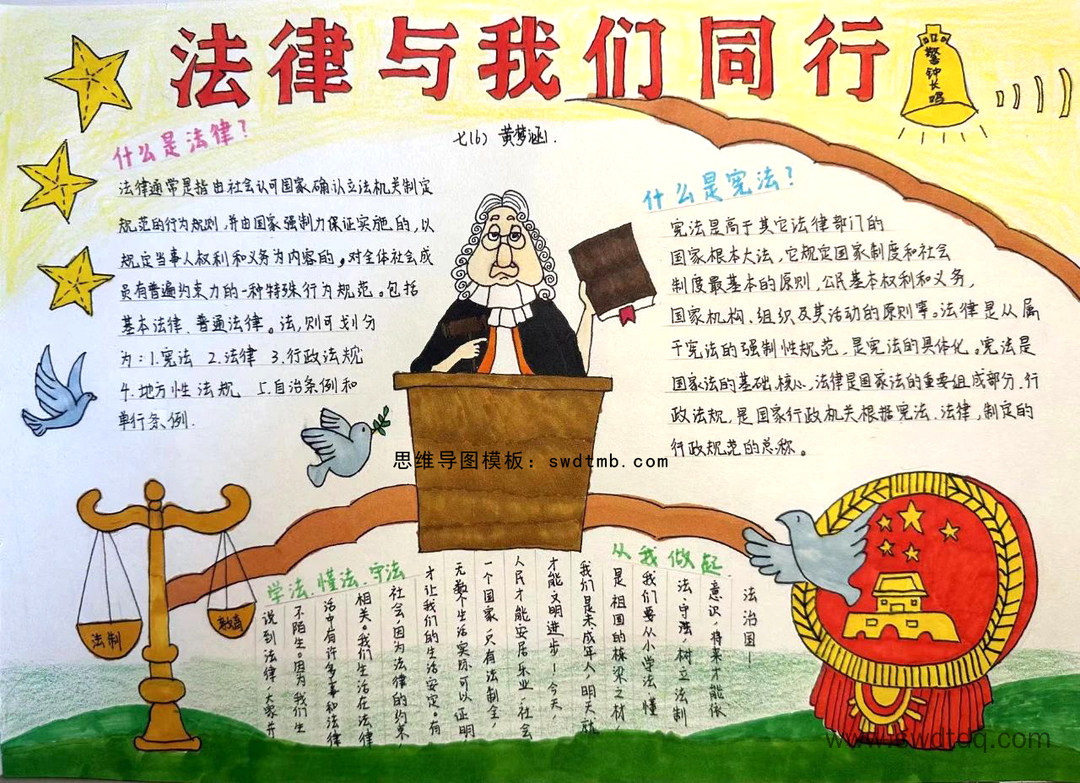 法律与我们同行
警钟长鸣
七(6) 黄梦涵
什么是法律?
法律通常是指由社会认可国家确认立法机关制定
规范的行为规则,并由国家强制力保证实施的,以
规定当事人权利和义务为内容的。对全体社会成
员有普遍约束力的一种特殊行为规范。包括
基本法律、普通法律。法,则可划分
为:1.宪法 2.法律 3.行政法规
4.地方性法规 5.自治条例和
单行条例.
什么是宪法?
宪法是高于其它法律部门的
国家根本大法,它规定国家制度和社会
制度最基本的原则,公民基本权利和义务,
国家机构、组织及其活动的原则等。法律是从属
于宪法的强制性规范,是宪法的具体化。宪法是
国家法的基础,核心,法律是国家法的重要组成部分.行
政法规,是国家行政机关根据宪法、法律,制定的
行政规范的总称。
思维导图模板:swdtmb.com
法制
教育
学法、懂法、守法
说到法律,大家并
不陌生。因为我们生
活中有许多事和法律
相关。我们生活在法律
社会,因为法律的约束,
才让我们的生活安定。有
无数个生活实际可以证明
一个国家,只有法制全,
人民才能安居乐业,社会
才能文明进步!今天,
我们是未成年人,明天就
是祖国的栋梁之材,
我们要从小学法、懂
法、守法,树立法制
意识,将来才能依
法治国!
从我做起
www.swdtdq.com